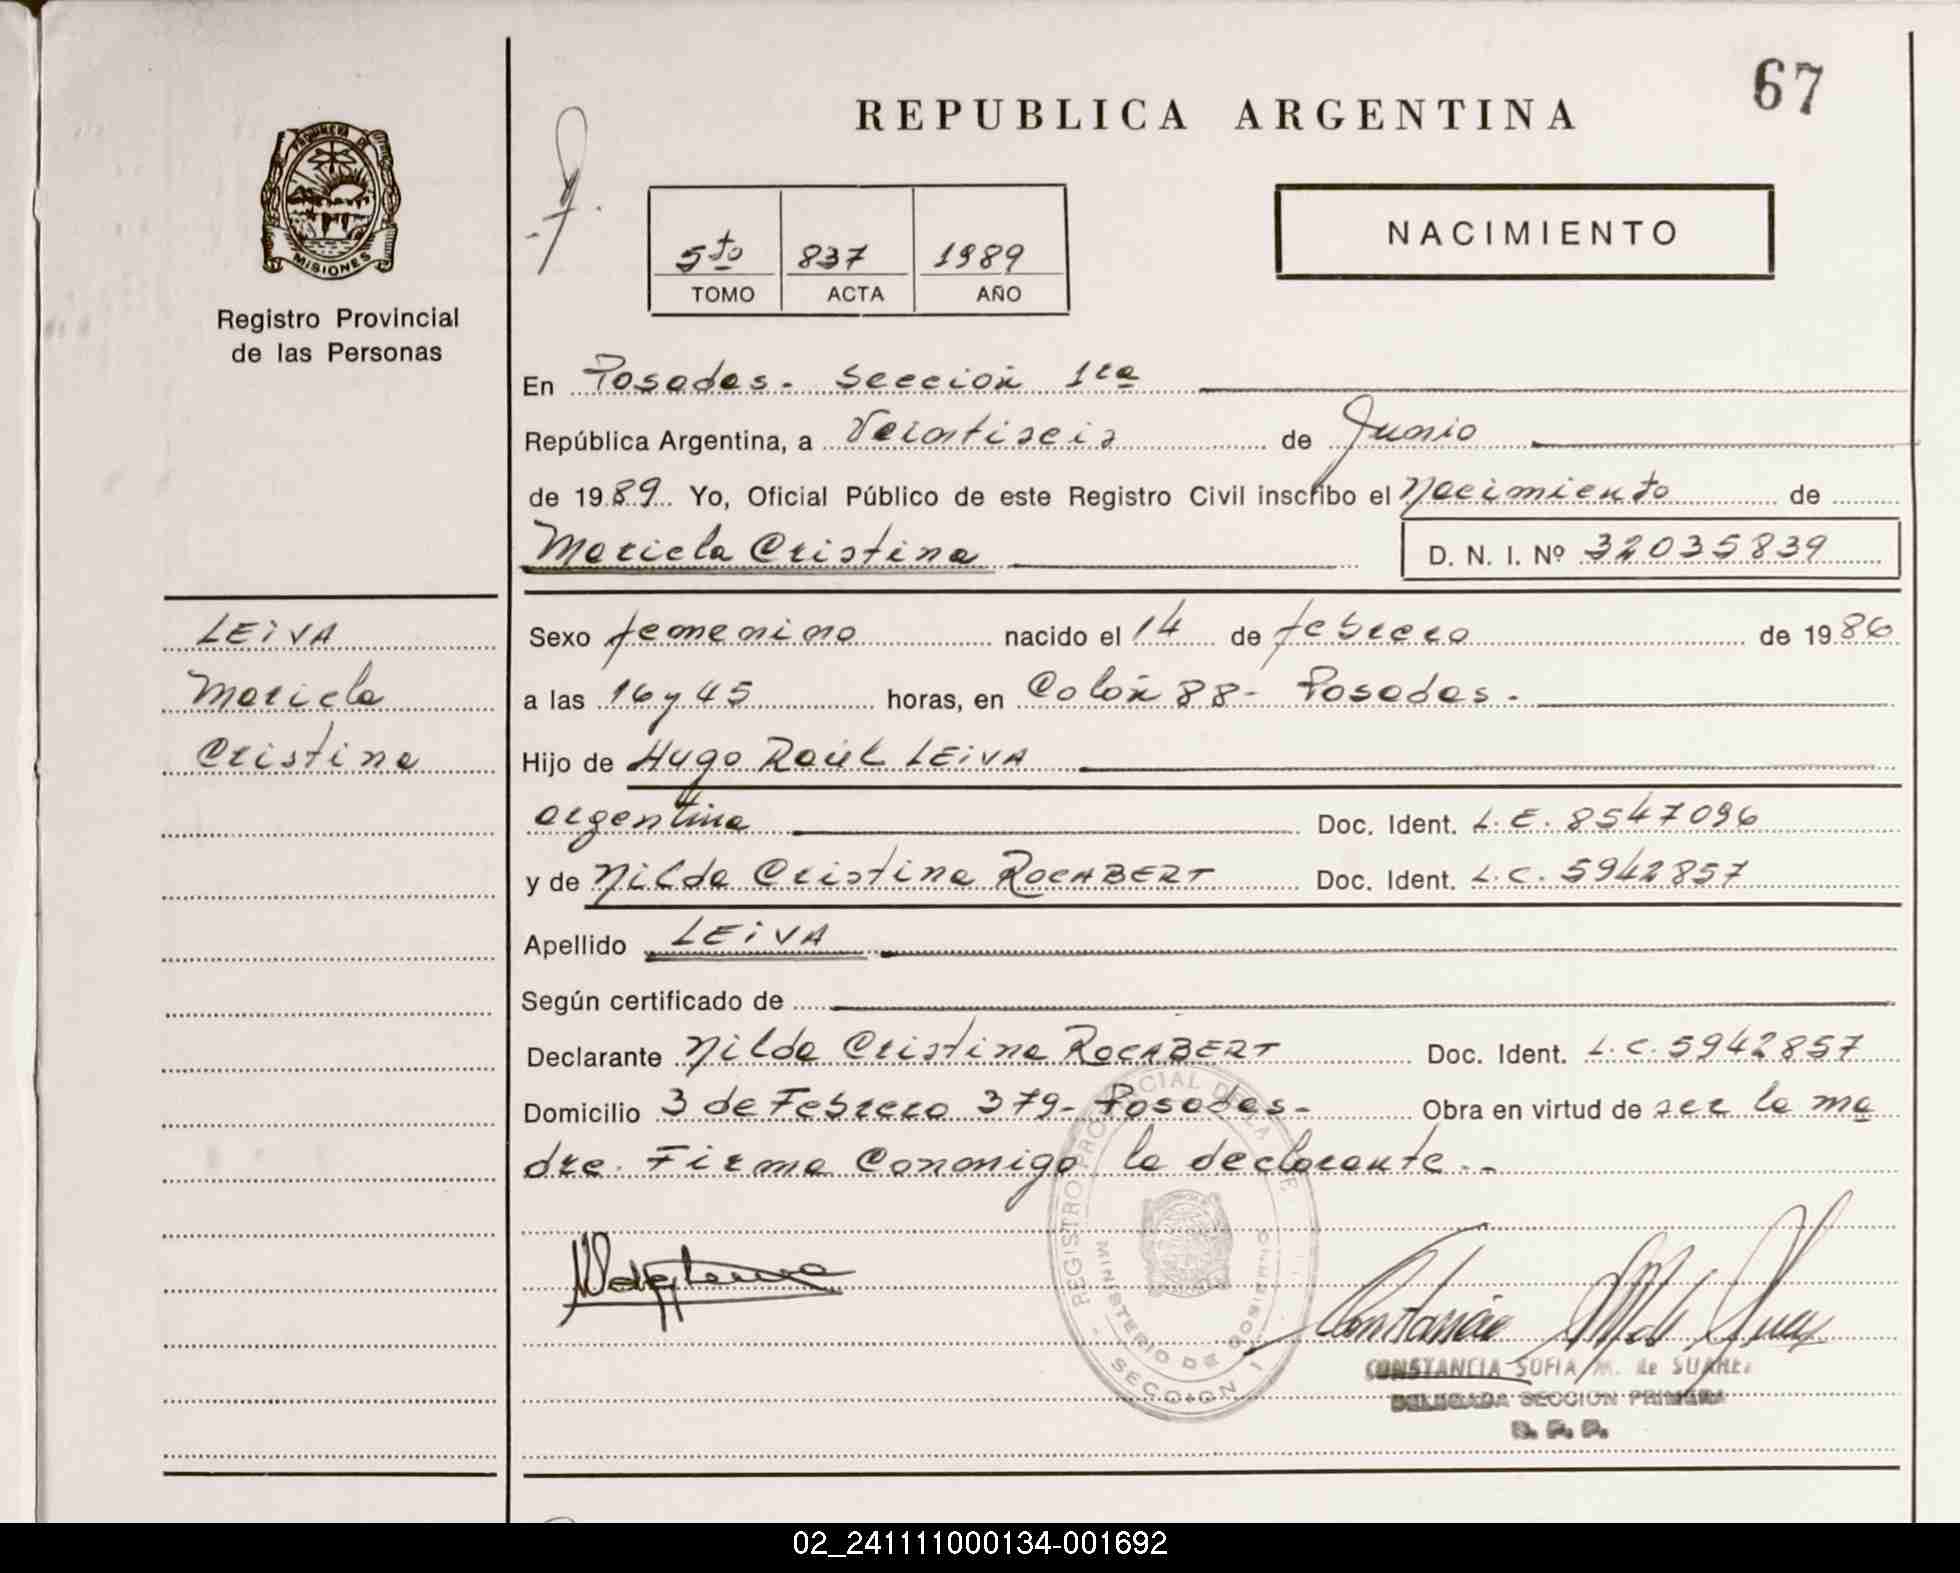 67
REPUBLICA ARGENTINA
NACIMIENTO
5to 837 1989
TOMO ACTA AÑO
PROVINCIA DE
MISIONES
Registro Provincial
de las Personas
En Posadas - Sección 1ra
República Argentina, a Veintiseis de Junio
de 1989 Yo, Oficial Público de este Registro Civil inscribo el Nacimiento de
Mariela Cristina D. N. I. Nº 32035839
LEiVA
Mariela
Cristina
Sexo femenino nacido el 14 de febrero de 1986
a las 16 y 45 horas, en Colón 88 - Posadas.
Hijo de Hugo Raúl LEiVA
argentina Doc. Ident. L.E. 8547096
y de Nilda Cristina ROCABERT Doc. Ident. L.C. 5942857
Apellido LEiVA
Según certificado de
Declarante Nilda Cristina ROCABERT Doc. Ident. L.C. 5942857
Domicilio 3 de Febrero 379 - Posadas - Obra en virtud de ser la ma
dre. Firma Conmigo la declarante. -
REGISTRO PROVINCIAL DE LA
MINISTERIO DE GOBIERNO
SECCION 1
CONSTANCIA SOFIA M. de SUAREZ
DELEGADA SECCION PRIMERA
02_241111000134-001692